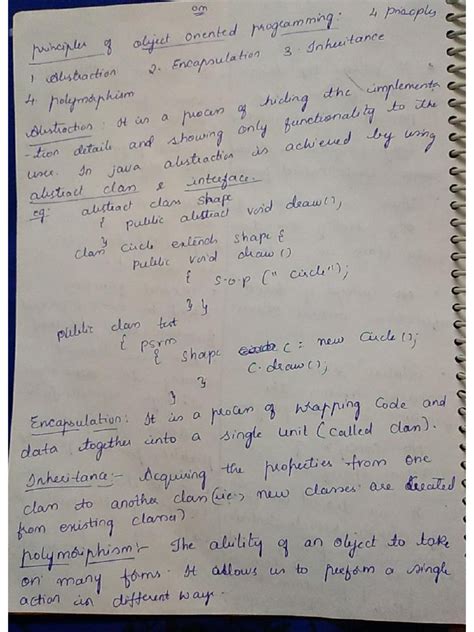 om
principles of object oriented programming: 4 principles
1. Abstraction 2. Encapsulation 3. Inheritance
4. polymorphism
Abstraction: It is a process of hiding the implementa
-tion details and showing only functionality to the
user. In java abstraction is achieved by using
abstract class & interface.
eg: abstract class shape
{ public abstract void draw();
}
class Circle extends shape {
public void draw()
{ s.o.p ("circle");
} }
public class test
{ psvm
{ shape c = new Circle();
c.draw();
} }
Encapsulation: It is a process of wrapping code and
data together into a single unit (called class).
Inheritance:- Acquiring the properties from one
class to another class (i.e., new classes are created
from existing classes).
polymorphism:- The ability of an object to take
on many forms. It allows us to perform a single
action in different ways.